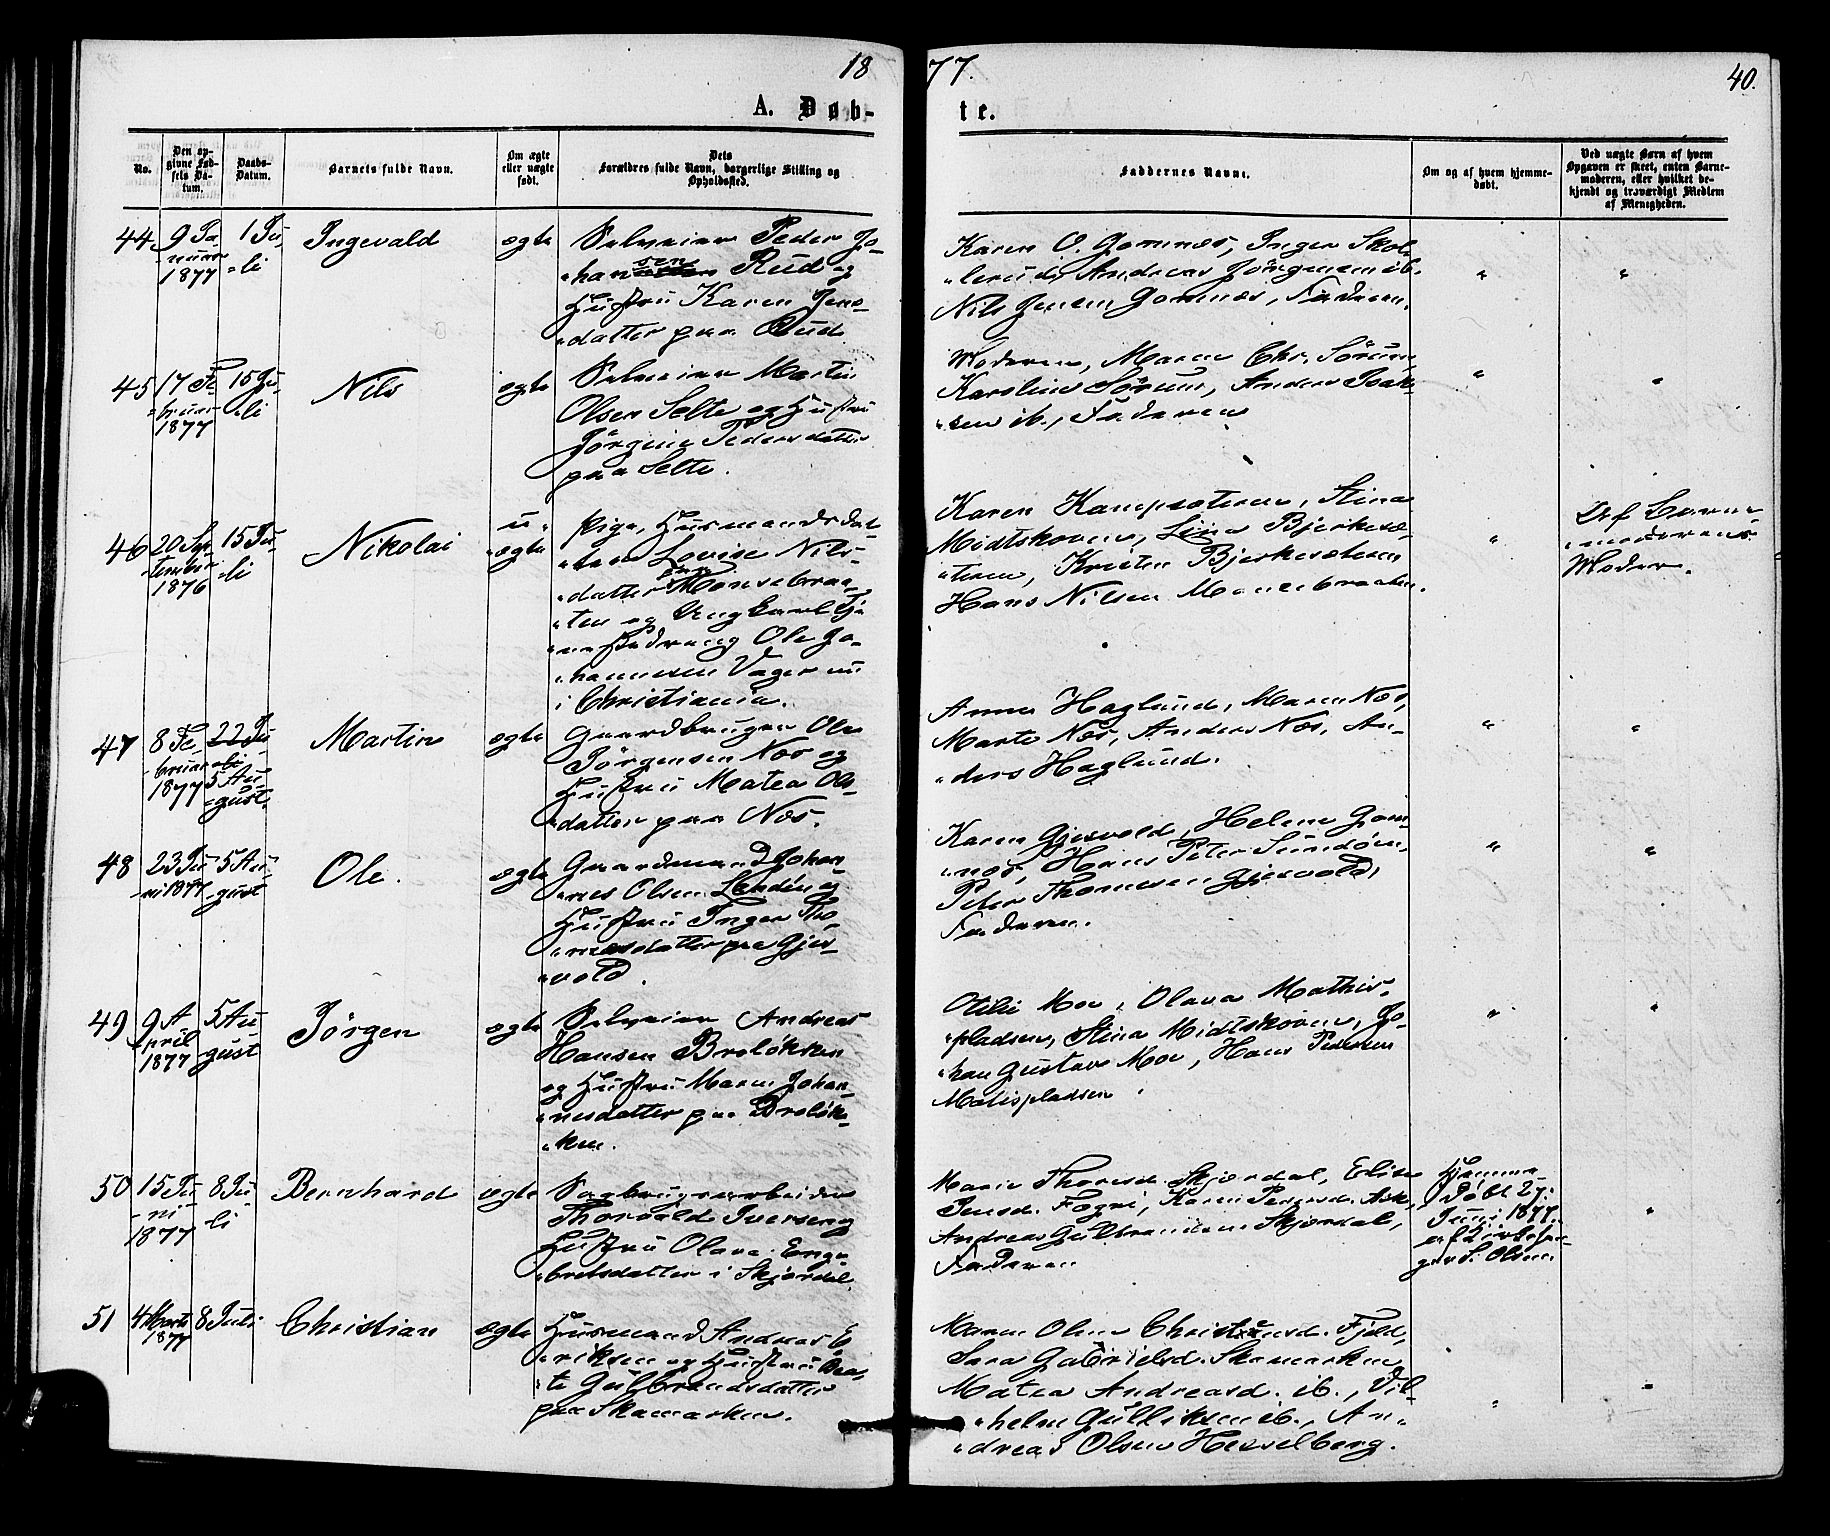 18
77.
40.
A. Døb-
te.
No.
Den op-
givne Fød-
sels Da-
tum.
Daabs-
Datum.
Barnets fulde Navn.
Om ægte
eller uægte
født.
Dets
Forældres fulde Navn, borgerlige Stilling og
Opholdssted.
Faddernes Navne.
Om og af hvem hjemme-
døbt.
Ved uægte Børn af hvem
Opgaven er skeet, enten Barne-
moderen, eller hvilket be-
kjendt og troværdigt Medlem
af Menigheden.
44.
9 Ja-
nuar
1877
1 Ju-
li
Ingevald
ægte
Selveier Peder Jo-
hansen Rud og
Hustru Karen Jens-
datter paa Rud
Karen O. Gomnæs, Inger Skol-
lerud, Andreas Jörgensen ib.
Nils Jensen Gomnæs, Faderen.
"
"
45
17 Fe-
bruar
1877
15 Ju-
li
Nils
ægte
Selveier Martin
Olsen Selte og Hustru
Jörgine Pedersdatter
paa Selte.
Moderen, Maren Chr. Sörum,
Karoline Sörum, Anders Isak-
sen ib., Faderen
"
"
46
20 Sep-
tember
1876
15 Ju-
li
Nikolai
u-
ægte
Pige, Husmandsdat-
ter Lovise Nils-
datter Monsebraa-
ten og Ungkarl Tje-
nestedreng Ole Jo-
hannesen Vager nu
i Christiania.
Karen Kampesæteren, Stina
Midtskoven, Lina Bjerkesæ-
teren, Kristen Bjerkesæteren
Hans Nilsen Monsebraaten.
"
Af Barne-
moderens
Moder.
47
8 Fe-
bruar
1877
22 Ju-
li
5 Au-
gust
Martin
ægte
Gaardbruger Ole
Jörgensen Næs og
Hustru Matea Ols-
datter paa Næs.
Anna Haglund, Maren Næs,
Marte Næs, Anders Næs, An-
ders Haglund.
"
"
48
23 Ju-
ni 1877
5 Au-
gust
Ole.
ægte
Gaardmand Johan-
nes Olsen Landön og
Hustru Inger Tho-
mesdatter paa Gjes-
vold.
Karen Gjesvold, Helene Gom-
næs, Hans Peter Sundöen,
Peter Thomesen Gjesvold,
Faderen.
"
"
49
9 A-
pril
1877
5 Au-
gust
Jörgen
ægte
Selveier Andreas
Hansen Brolökken
og Hustru Maren Johan-
nesdatter paa Brolök-
ken.
Otilie Moe, Olava Mathis-
pladsen, Stina Midtskoven, Jo-
han Gustav Moe, Hans Pedersen
Matispladsen.
"
"
50
15 Ju-
ni
1877
8 Ju-
li
Bernhard
ægte
Sagbrugsarbeider
Thorvald Iversen og
Hustru Olava Enge-
bretsdatter i Skjerdal.
Marie Thoresd. Skjerdal, Elise
Jensd. Fagri, Karen Pedersd. Ask,
Andreas Gulbrandsen Skjerdal,
Faderen
Hjemme-
döbt 27.
Juni 1877
S. Olsen.
"
51
4 Marts
1877
8 Juli
Christian
ægte
Husmand Andreas E-
riksen og Hustru Bea-
te Gulbrandsdatter
paa Skamarken.
Maren Oline Christensd. Fjeld,
Sara Gabrielsd. Skamarken
Matea Andreasd. ib., Vil-
helm Gulliksen ib., An-
dreas Olsen Hesselberg.
"
"